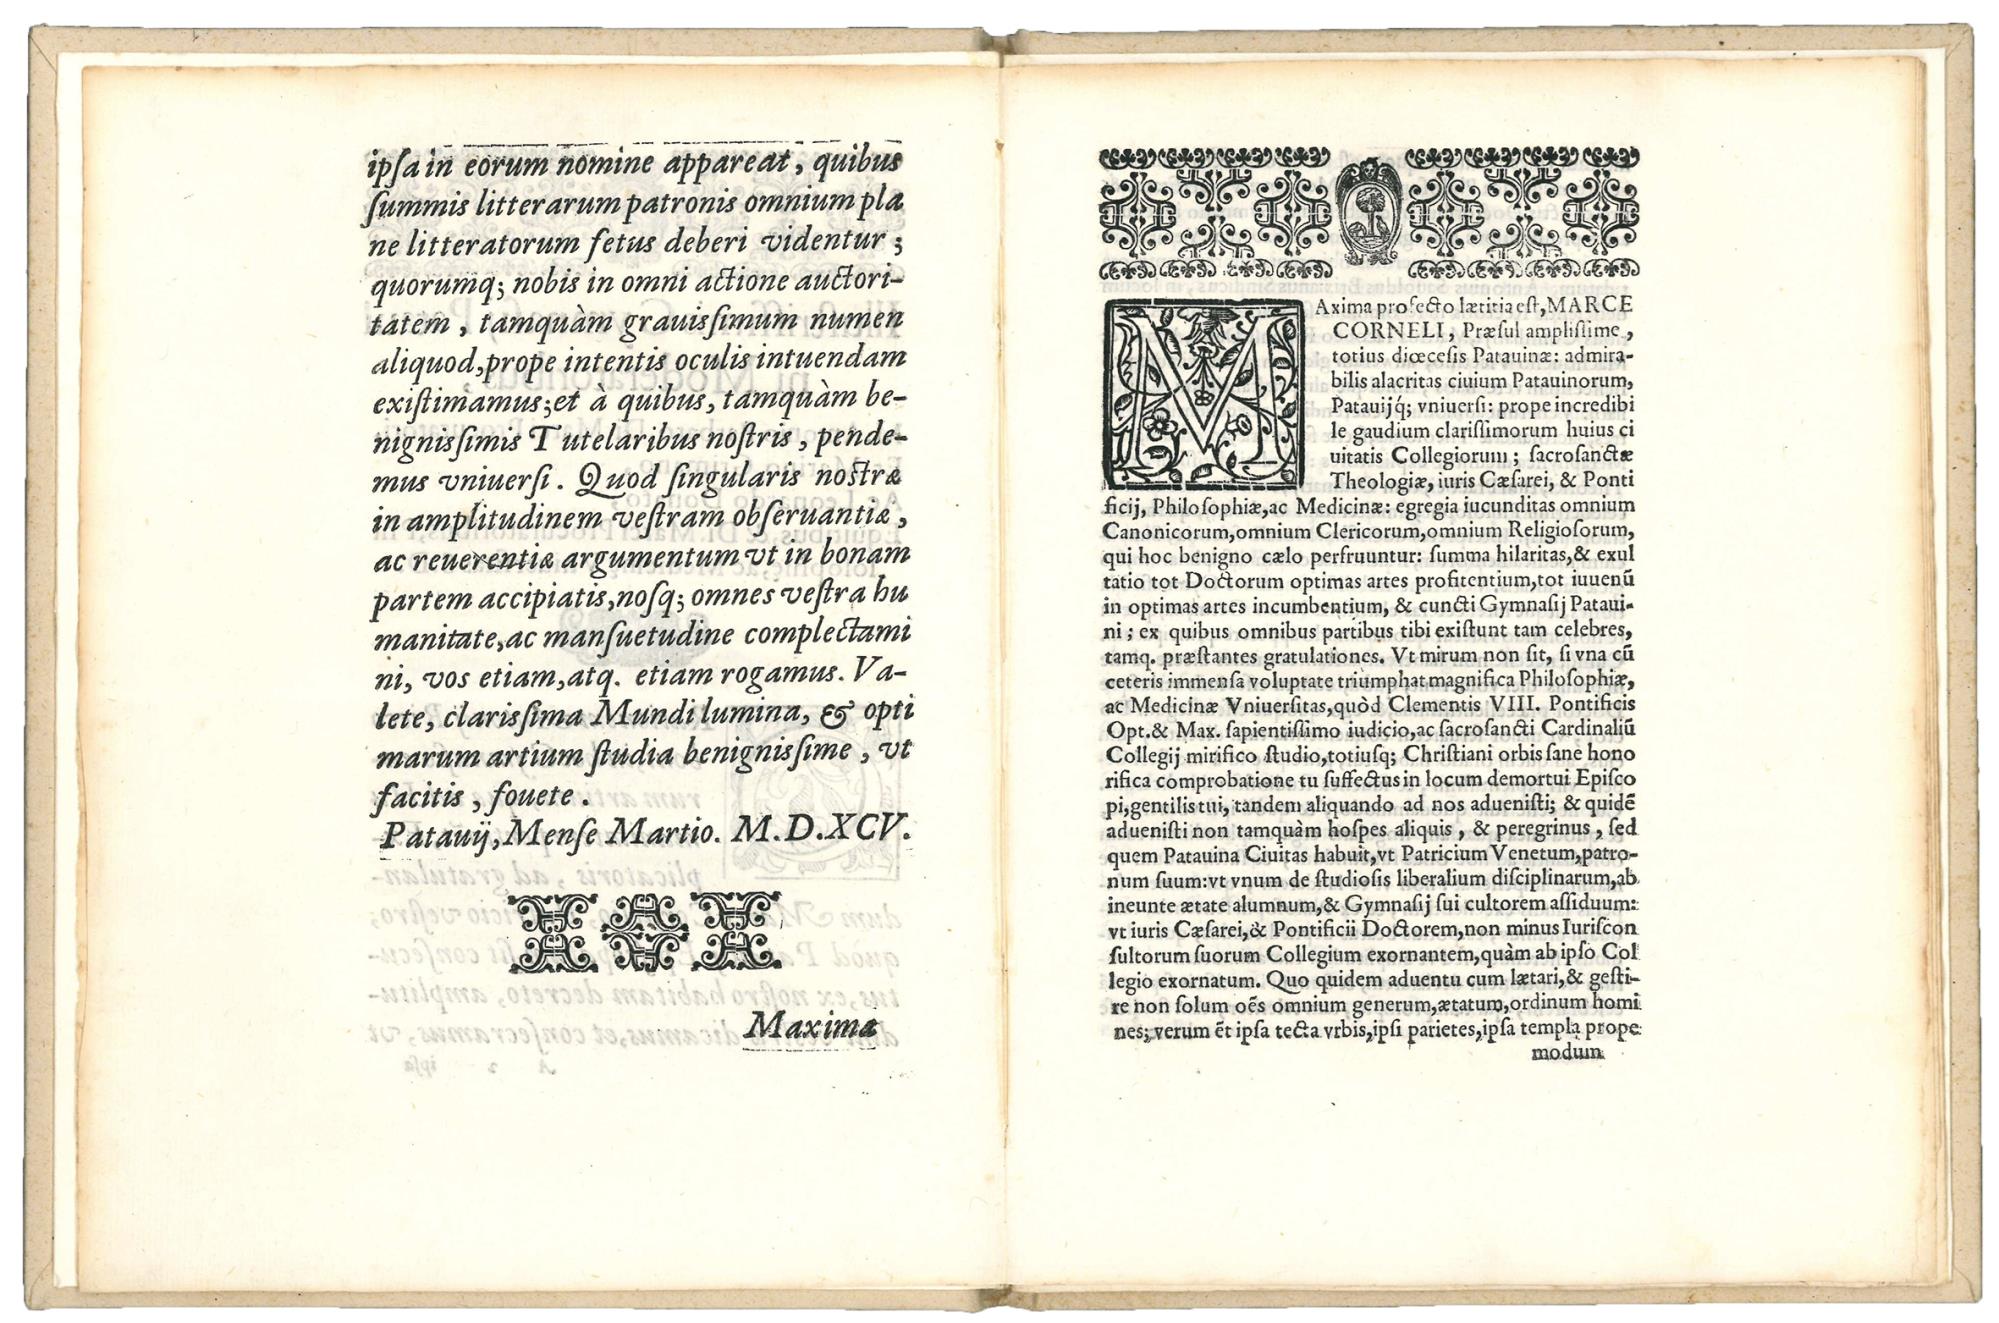 ipſa in eorum nomine appareat, quibus
ſummis litterarum patronis omnium pla
ne litteratorum fetus deberi videntur;
quorumq; nobis in omni actione auctori-
tatem, tamquàm grauiſsimum numen
aliquod, prope intentis oculis intuendam
exiſtimamus; et à quibus, tamquàm be-
nigniſsimis Tutelaribus noſtris, pende-
mus vniuerſi. Quod ſingularis noſtræ
in amplitudinem veſtram obſeruantiæ,
ac reuerentiæ argumentum vt in bonam
partem accipiatis, noſq; omnes veſtra hu
manitate, ac manſuetudine complectami
ni, vos etiam, atq. etiam rogamus. Va-
lete, clariſsima Mundi lumina, & opti
marum artium ſtudia benigniſsime, vt
facitis, fouete.
Patauij, Menſe Martio. M.D.XCV.
Maxima
MAxima profecto lætitia eſt, MARCE
CORNELI, Præſul ampliſſime,
totius diœceſis Patauinæ: admira-
bilis alacritas ciuium Patauinorum,
Patauijq́; vniuerſi: prope incredibi
le gaudium clariſſimorum huius ci
uitatis Collegiorum; ſacroſanctæ
Theologiæ, iuris Cæſarei, & Ponti
ficij, Philoſophiæ, ac Medicinæ: egregia iucunditas omnium
Canonicorum, omnium Clericorum, omnium Religioſorum,
qui hoc benigno cælo perfruuntur: ſumma hilaritas, & exul
tatio tot Doctorum optimas artes profitentium, tot iuuenũ
in optimas artes incumbentium, & cuncti Gymnaſij Pataui-
ni; ex quibus omnibus partibus tibi exiſtunt tam celebres,
tamq. præſtantes gratulationes. Vt mirum non ſit, ſi vna cũ
ceteris immenſa voluptate triumphat magnifica Philoſophiæ,
ac Medicinæ Vniuerſitas, quòd Clementis VIII. Pontificis
Opt. & Max. ſapientiſſimo iudicio, ac ſacroſancti Cardinaliũ
Collegij mirifico ſtudio, totiuſq; Chriſtiani orbis ſane hono
rifica comprobatione tu ſuffectus in locum demortui Epiſco
pi, gentilis tui, tandem aliquando ad nos adueniſti; & quidẽ
adueniſti non tamquàm hoſpes aliquis, & peregrinus, ſed
quem Patauina Ciuitas habuit, vt Patricium Venetum, patro-
num ſuum: vt vnum de ſtudioſis liberalium diſciplinarum, ab
ineunte ætate alumnum, & Gymnaſij ſui cultorem aſſiduum:
vt iuris Cæſarei, & Pontificii Doctorem, non minus Iuriſcon
ſultorum ſuorum Collegium exornantem, quàm ab ipſo Col
legio exornatum. Quo quidem aduentu cum lætari, & geſti-
re non ſolum oẽs omnium generum, ætatum, ordinum homi
nes; verum ẽt ipſa tecta vrbis, ipſi parietes, ipſa templa prope
modum